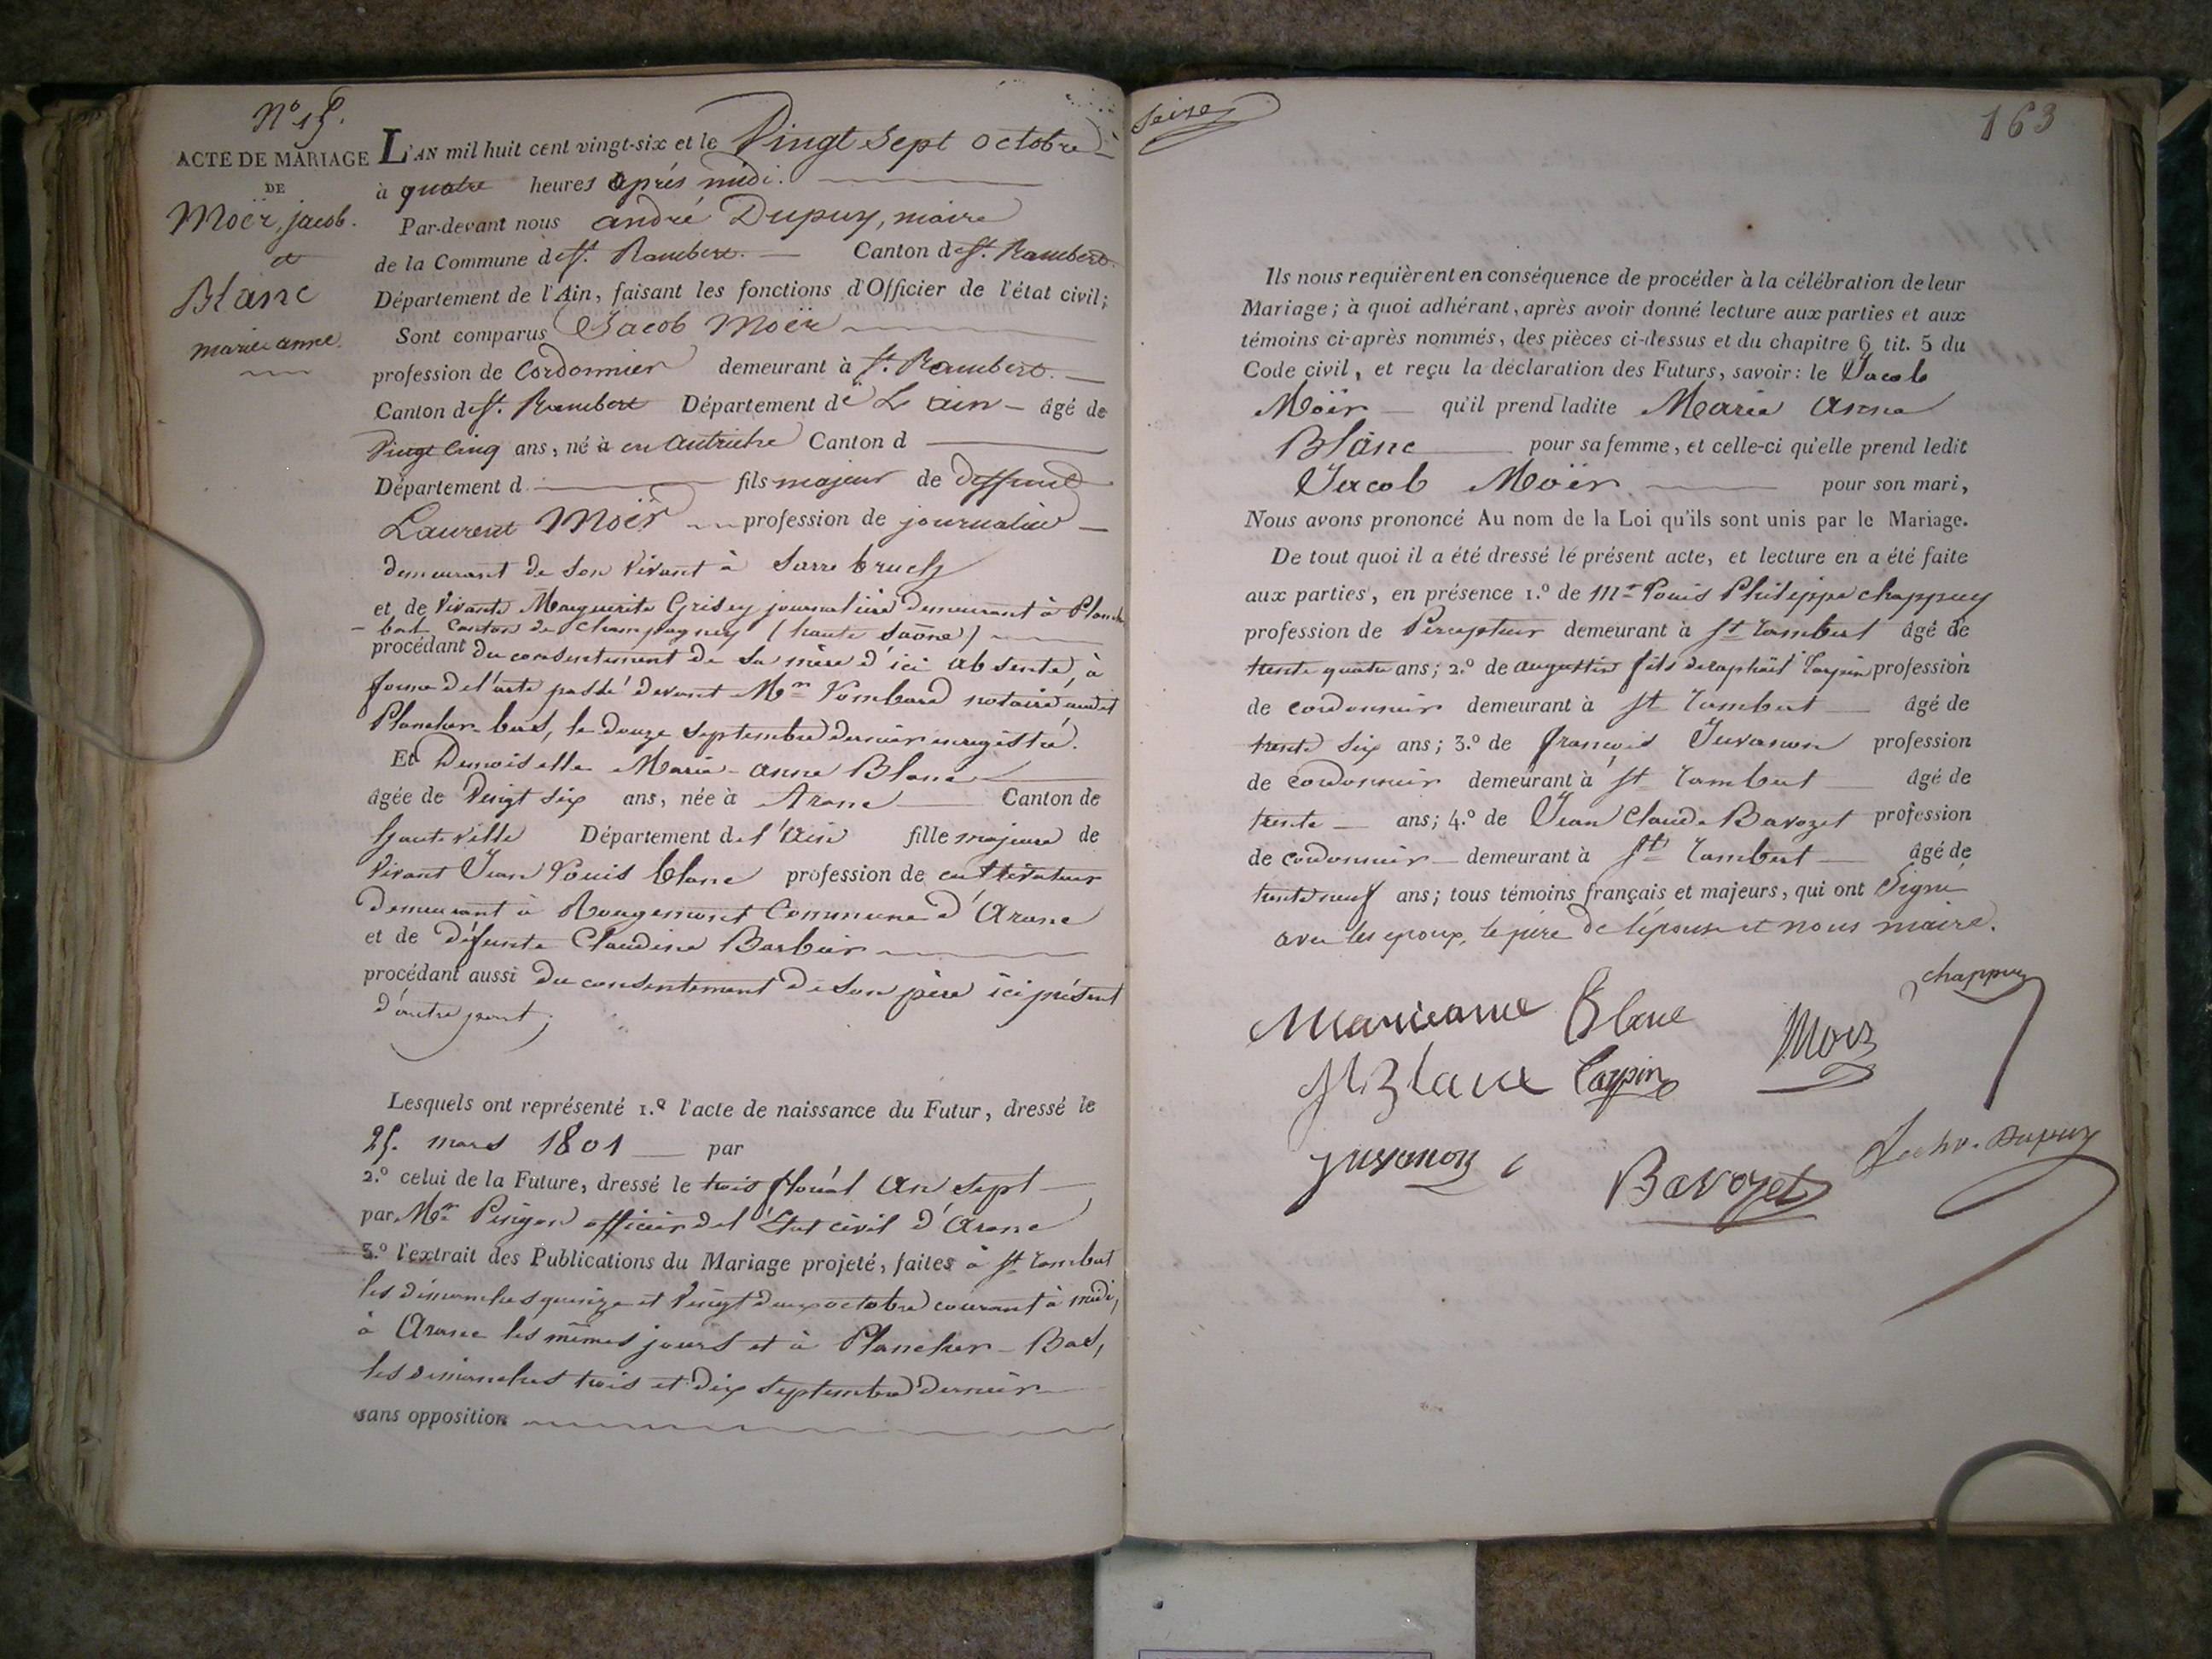 N° 15.
ACTE DE MARIAGE
DE
Moër, jacob.
et
Blanc
marie anne.
L'AN mil huit cent vingt-six et le Vingt Sept octobre
à quatre heures après midi.
Par-devant nous andré Dupuy, maire
de la Commune de St. Rambert. Canton de St. Rambert
Département de l'Ain, faisant les fonctions d'Officier de l'état civil;
Sont comparus Jacob Moër
profession de Cordonnier demeurant à St. Rambert.
Canton de St. Rambert Département de L'ain âgé de
Vingt Cinq ans, né à en Autriche Canton d
Département d fils majeur de deffunt
Laurent Moër profession de journalier
demeurant de son vivant à Sarrebruck
et de vivante Marguerite Grisey journalière demeurant à Planch
bas Canton de Champagney (haute Saône)
procédant du consentement de sa mère d'ici absente, à
forme de l'acte passé devant Mre Vombard notaire audit
Plancher-bas, le douze septembre dernier enregistré.
Et Demoiselle Marie-anne Blanc
âgée de Vingt six ans, née à Aranc Canton de
hauteville Département de l'Ain fille majeure de
vivant Jean Louis blanc profession de cultivateur
demeurant à Rougemont Commune d'Aranc
et de défunte Claudine Barbier
procédant aussi du consentement de son père ici présent
d'autre part;
Lesquels ont représenté 1.º l'acte de naissance du Futur, dressé le
25. mars 1801 par
2.º celui de la Future, dressé le trois floréal an sept
par Mr Pingon officier de l'État civil d'Aranc
3.º l'extrait des Publications du Mariage projeté, faites à St rambert
les dimanches quinze et vingt deux octobre courant à midi,
à Aranc les mêmes jours et à Plancher-Bas,
les dimanches trois et dix septembre dernier
sans opposition
Seize
163
Ils nous requièrent en conséquence de procéder à la célébration de leur
Mariage; à quoi adhérant, après avoir donné lecture aux parties et aux
témoins ci-après nommés, des pièces ci-dessus et du chapitre 6 tit. 5 du
Code civil, et reçu la déclaration des Futurs, savoir: le Jacob
Moër qu'il prend ladite Marie Anne
Blanc pour sa femme, et celle-ci qu'elle prend ledit
Jacob Moër pour son mari,
Nous avons prononcé Au nom de la Loi qu'ils sont unis par le Mariage.
De tout quoi il a été dressé le présent acte, et lecture en a été faite
aux parties, en présence 1.º de Mr Louis Philippe chappuy
profession de Percepteur demeurant à St rambert âgé de
trente quatre ans; 2.º de augustin fils de raphaël Carpin profession
de cordonnier demeurant à St rambert âgé de
trente six ans; 3.º de françois Juvanon profession
de cordonnier demeurant à St rambert âgé de
trente ans; 4.º de Jean Claude Bavozet profession
de cordonnier demeurant à St rambert âgé de
trente neuf ans; tous témoins français et majeurs, qui ont Signé
avec les epoux, le père de l'épouse et nous maire.
chappuy
Marieanne Blanc
Moër
Jl Blanc Carpin
Juvanon
Bavozet
Dupuy